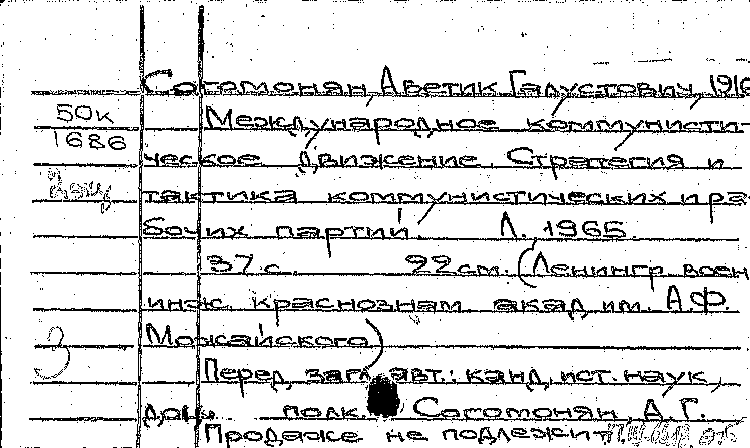 Согомонян, Аветик Галустович, 1916
50к
1686
Международное коммунисти-
ческое движение. Стратегия и
тактика коммунистических и ра-
бочих партий. Л. 1965.
37 с. 22 см. (Ленингр. воен.
инж. краснознам. акад. им. А.Ф.
Можайского)
3
Перед загл. авт.: канд. ист. наук,
доц. полк. Согомонян, А.Г.
Продаже не подлежит